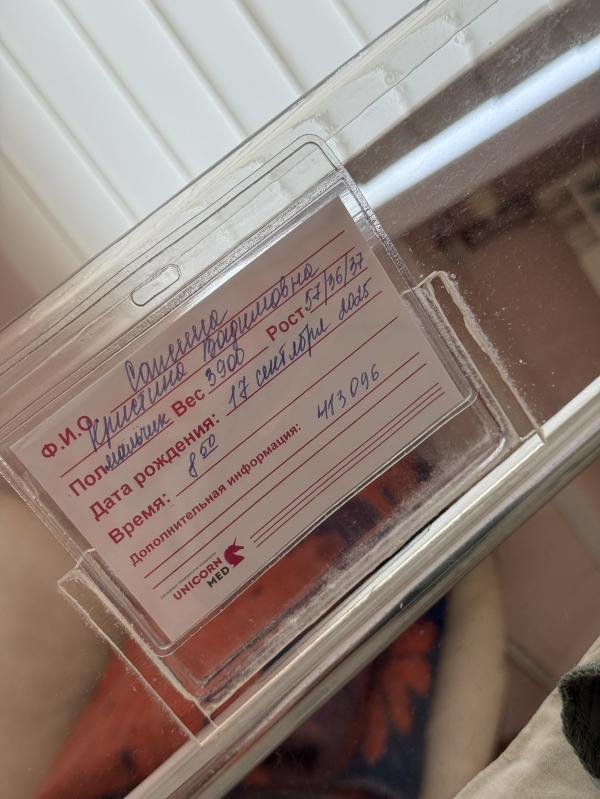 Ф.И.О. Санина
Кристина Вадимовна
Пол мальчик Вес 3900 Рост 57/36/37
Дата рождения: 17 сентября 2025
Время: 8 50
Дополнительная информация: 413096
UNICORN
MED